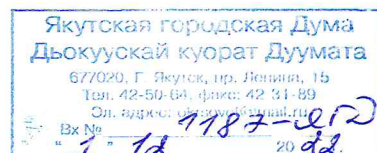 Якутская городская Дума
Дьокуускай куорат Дуумата
677020, Г. Якутск, пр. Ленина, 15
Тел. 42-50-64, факс: 42-31-89
Эл. адрес:
Вх № 1187-ЯГД
" 1 " 12 2022.